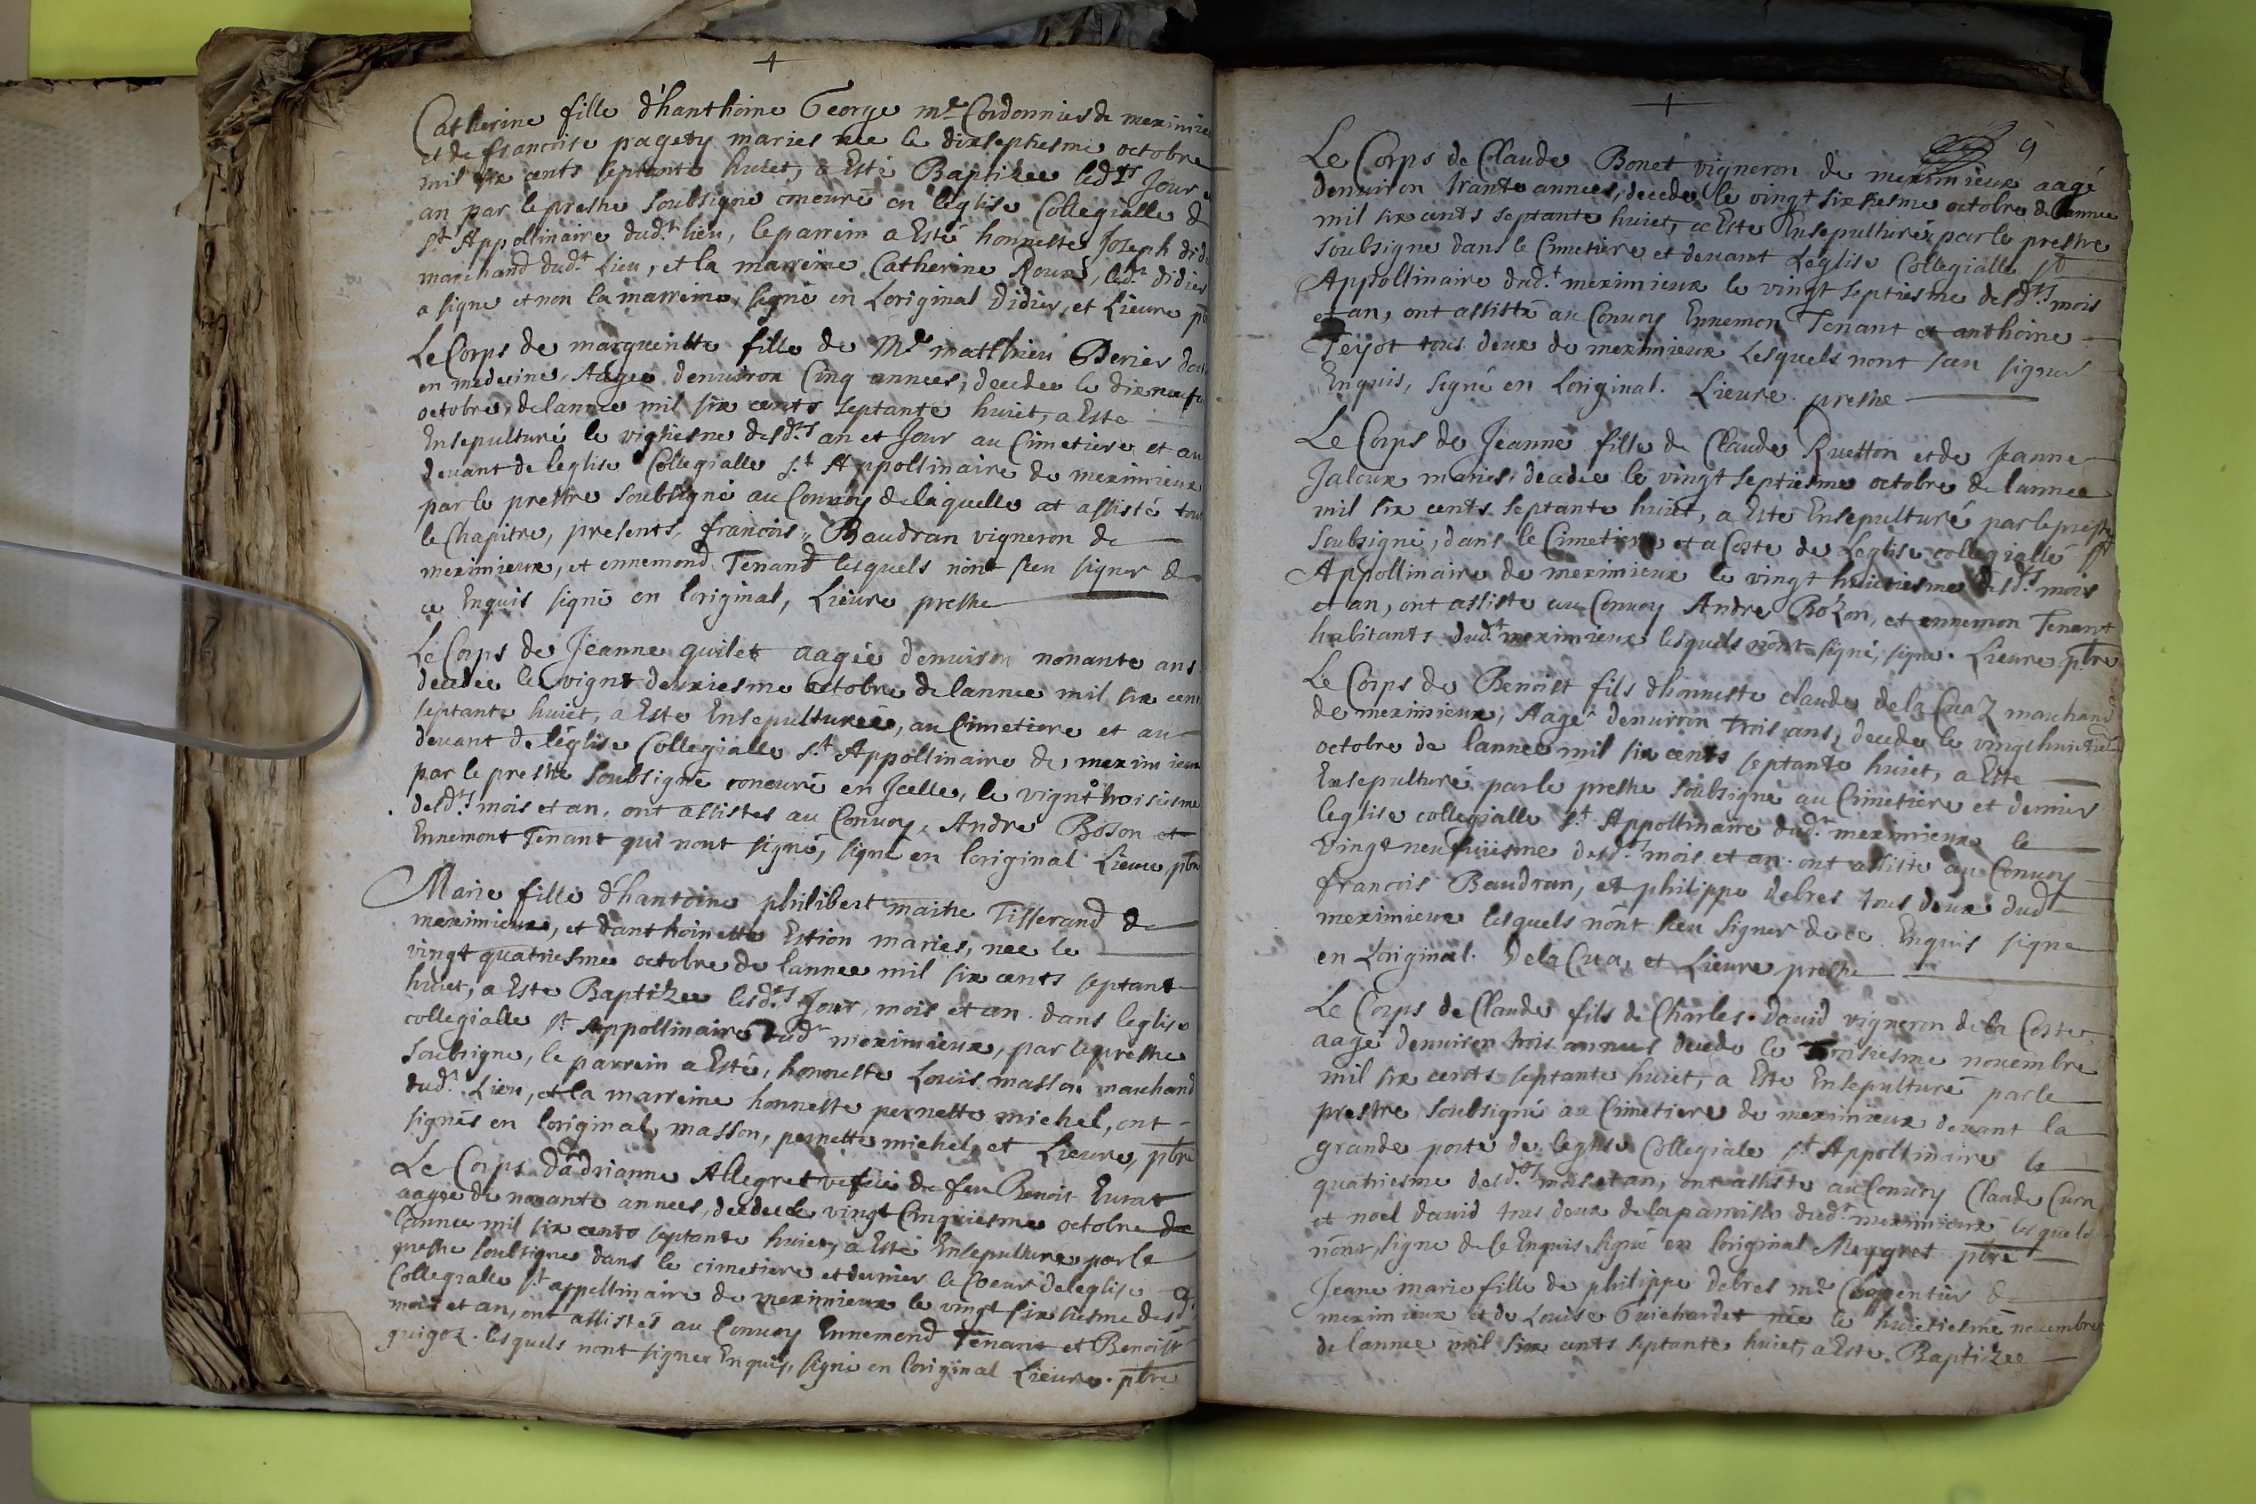 Catherine fille d'hanthoine George me Cordonnier de meximie
et de francoise pagety maries nee le dixseptiesme octobre
mil six cents septante huict, a Esté Baptizee lesd.ts Jour
an par le prestre soubsigné en l'eglise Collegialle d
St Appollinaire dud.t lieu, le parrein a Esté honneste Joseph did
marchand dud.t Lieu, et la marreine Catherine Roux, led.t didier
a signe et non la marreine, signé en Loriginal didier, et Lieure p
Le Corps de marguerite fille de Mre matthieu Perier do
en medecine, Aagee denuiron Cinq annees, decedee le dixneufu
octobre, de lannee mil six cents septante huict, a Este
Ensepulturé le vigtiesme desd.ts an et Jour au Cimetiere et au
deuant de leglise Collegialle S.t Appollinaire de meximieux
par le prestre soubsigné au Conuoy de laquelle at assisté tou
le Chapitre, presents, francois Baudran vigneron de
meximieux, et ennemond Tenand lesquels n'ont sceu signer de
ce Enquis signé en loriginal, Lieure prestre
Le Corps de Jeanne quilet aagée denuiron nonante ans
decedee le vignt deuxiesme octobre de lannee mil six cent
septante huict, a Este Ensepulturée, au Cimetiere et au
deuant de léglise Collegialle S.t Appollinaire de meximieux
par le prestre soubsigné en Jcelle, le vignt troisiesme
desd.ts mois et an, ont assistes au Conuoy, Andre Boson et
Ennemont Tenant qui nont signé, signé en loriginal Lieure pbre
Marie fille d'hantoine philibert maitre Tisserand de
meximieux, et danthoinette Estion maries, née le
vingt quatriesme octobre de lannee mil six cents septante
huict, a Este Baptizee lesd.ts Jour, mois et an dans leglise
collegialle St Appollinaire dud.t meximieux, par le prestre
soubsigne, le parrein a Esté, honneste Louis masson marchand
dud.t Lieu, et la marreine honneste pernette michel, ont
signés en loriginal, masson, pernette michel, et Lieure, pbre
Le Corps dadrianne Allegret vefue de feu Benoit Eurat
aagée de nonante annees, decedee le vingt Cinquiesme octobre de
lannee mil six cents septante huict, a Esté Ensepulture par le
prestre soubsigne dans le cimetiere et dernier le Coeur deleglise
Collegialle St appollinaire de meximieux le vingt sixiesme desd.ts
mois et an, ont assistés au Conuoy Ennemond Tenant et Benoist
guigoz lesquels nont signer Enquis, signé en loriginal Lieure pbre
9
Le Corps de Claude Bonet vigneron de meximieux aagé
denuiron trante annees, decede le vingt sixiesme octobre de lannee
mil six cents septante huict, a Este Ensepulturé par le prestre
soubsigne dans le Cimetiere et deuant Léglise Collegialle St
Appollinaire dud.t meximieux le vingt septiesme desd.ts mois
et an, ont assisté au Conuoy Ennemon Tenant et anthoine
Teyot tous deux de meximieux Lesquels nont sceu signer
Enquis, signé en Loriginal. Lieure prestre
Le Corps de Jeanne fille de Claude Ruetton et de Jeanne
Jaloux maries, decedee le vingt septiesme octobre de lannee
mil six cents septante huict, a Este Ensepulturé par le prestre
soubsigné, dans le Cimetiere et a Coste de Léglise collegialle St
Appollinaire de meximieux le vingt huictiesme desd.ts mois
et an, ont assiste au Conuoy Andre Bozon, et ennemon Tenant
habitants dud.t meximieux lesquels n'ont signé, signe Lieure pbre
Le Corps de Benoist fils d'honneste claude de la Cuaz marchand
de meximieux, Aagé denuiron trois ans, decede le vingt huictiesme
octobre de lannee mil six cents septante huict, a Este
Ensepulturé par le prestre soubsigné au Cimetiere et dernier
leglise collegialle S.t Appollinaire dud.t meximieux le
vingt neufuiesme desd.ts mois et an ont assiste au Conuoy
francois Baudran, et philippe debres tous deux dud.t
meximieux lesquels nont sceu signer de ce Enquis signe
en Loriginal. De la Cua, et Lieure prestre
Le Corps de Claude fils de Charles dauid vigneron de la Coste
aagé denuiron trois annees decede le troisiesme nouembre
mil six cents septante huict, a Este Ensepulturé par le
prestre soubsigné au Cimetiere de meximieux deuant la
grande porte de leglise Collegiale St Appollinaire le
quatriesme desd.ts mois et an, ont assiste au Conuoy Claude Curn
et noel dauid tous deux de la parroisse dud.t meximieux lesquels
n'ont signe de ce Enquis signé en loriginal Meygret pbre
Jeane marie fille de philippe debres me Charpentier de
meximieux et de Louise Guichardet née le huictiesme nouembre
de lannee mil six cents septante huict, a Este Baptizee